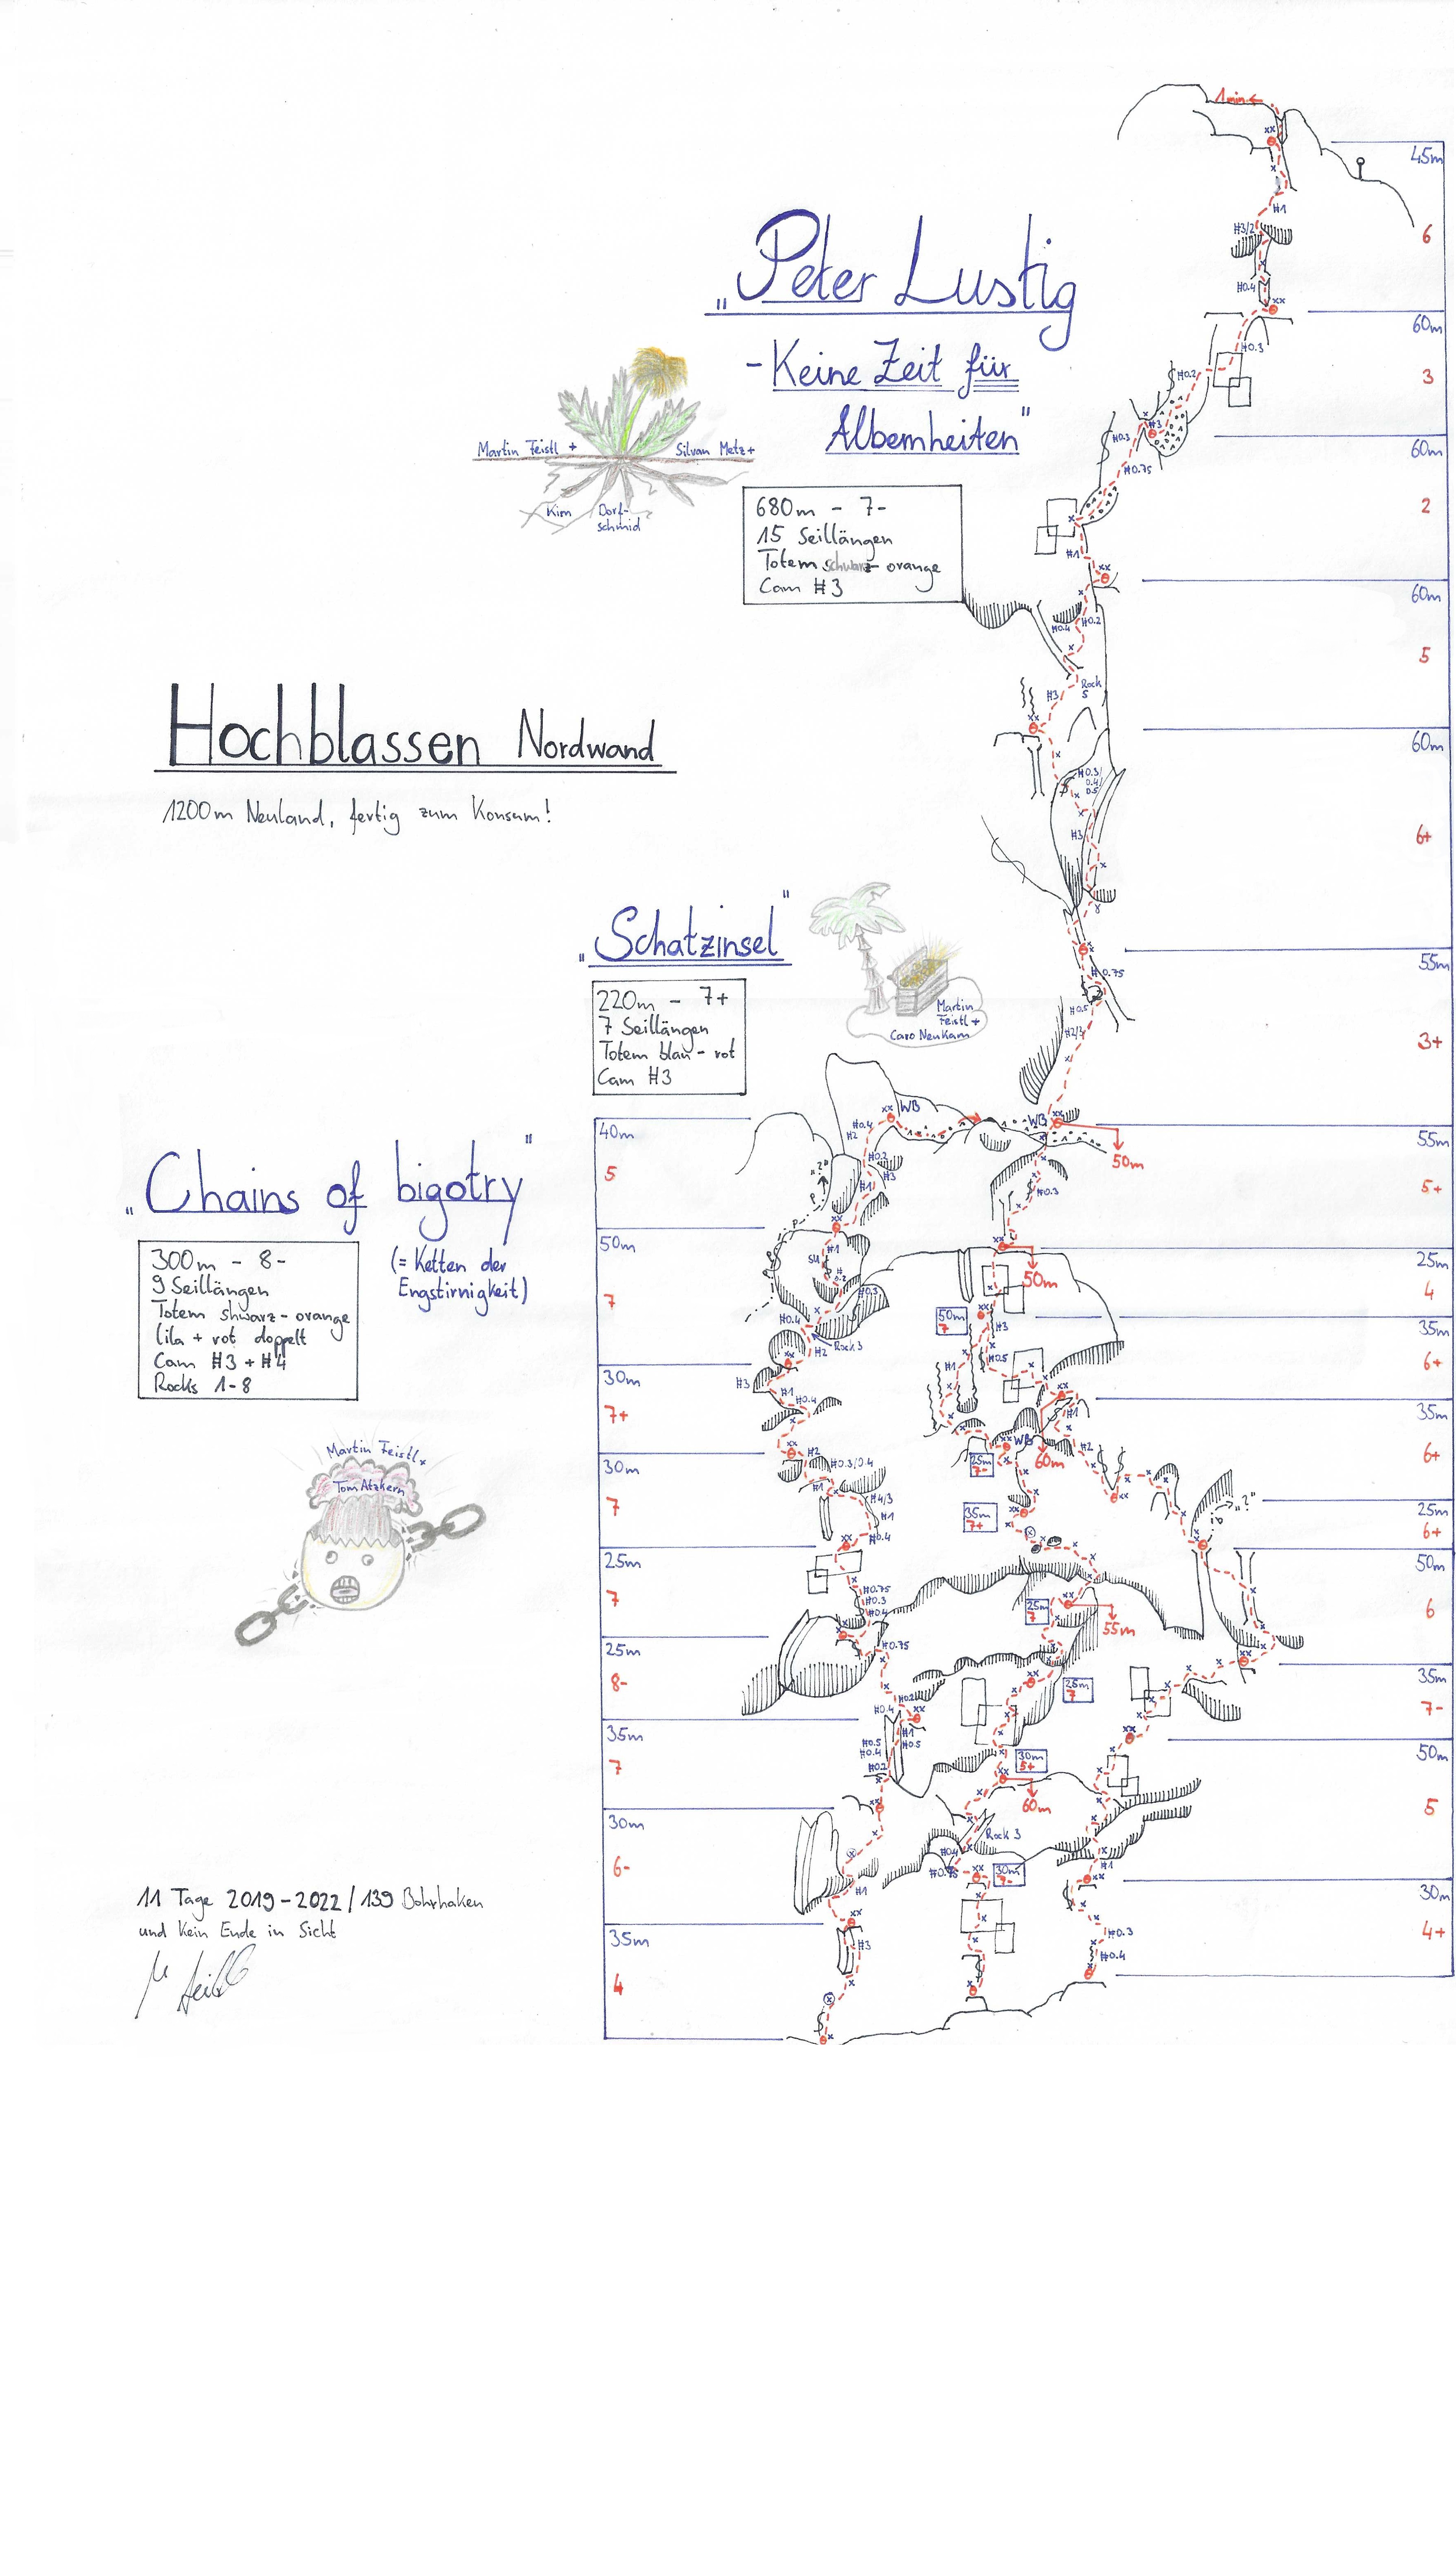 „Peter Lustig
- Keine Zeit für
Albernheiten"
Martin Feistl +
Silvan Metz +
Kim Dorf-
schmid
680m - 7-
15 Seillängen
Totem schwarz - orange
Cam #3
Hochblassen Nordwand
1200m Neuland, fertig zum Konsum!
„Schatzinsel"
220m - 7+
7 Seillängen
Totem blau - rot
Cam #3
Martin
Feistl +
Caro Neukam
„Chains of bigotry"
(= Ketten der
Engstirnigkeit)
300m - 8-
9 Seillängen
Totem shwarz - orange
lila + rot doppelt
Cam #3 + #4
Rocks 1-8
Martin Feistl +
Tom Atzkern
11 Tage 2019 - 2022 / 139 Bohrhaken
und kein Ende in Sicht
40m
5
50m
7
30m
7+
30m
7
25m
7
25m
8-
35m
7
30m
6-
35m
4
1 min
45m
6
60m
3
60m
2
60m
5
60m
6+
55m
3+
55m
5+
25m
4
35m
6+
35m
6+
25m
6+
50m
6
35m
7-
50m
5
30m
4+
#1
#3/2
#0.4
#0.3
#0.2
#3
#0.3
#0.75
#1
#0.4
#0.2
Rock
5
#3
#0.3/
0.4/
0.5
#3
#0.75
#0.5
WB
WB
50m
#0.3
50m
50m
7
#3
#0.5
#1
#1
#2
WB
60m
25m
7-
35m
7+
"?"
25m
7
55m
25m
7
30m
5+
60m
Rock 3
#0.4
30m
#1
#0.3
#0.4
#0.4
#2
#0.2
#3
#1
"?"
P
#1
SU
#0.3
#0.4
Rock 3
#2
#3
#1
#0.4
#2
#0.3/0.4
#1
#4/3
#1
#0.4
#0.75
#0.3
#0.4
#0.75
#0.2
#0.4
#1
#0.5
#0.5
#0.4
#0.2
#1
#3